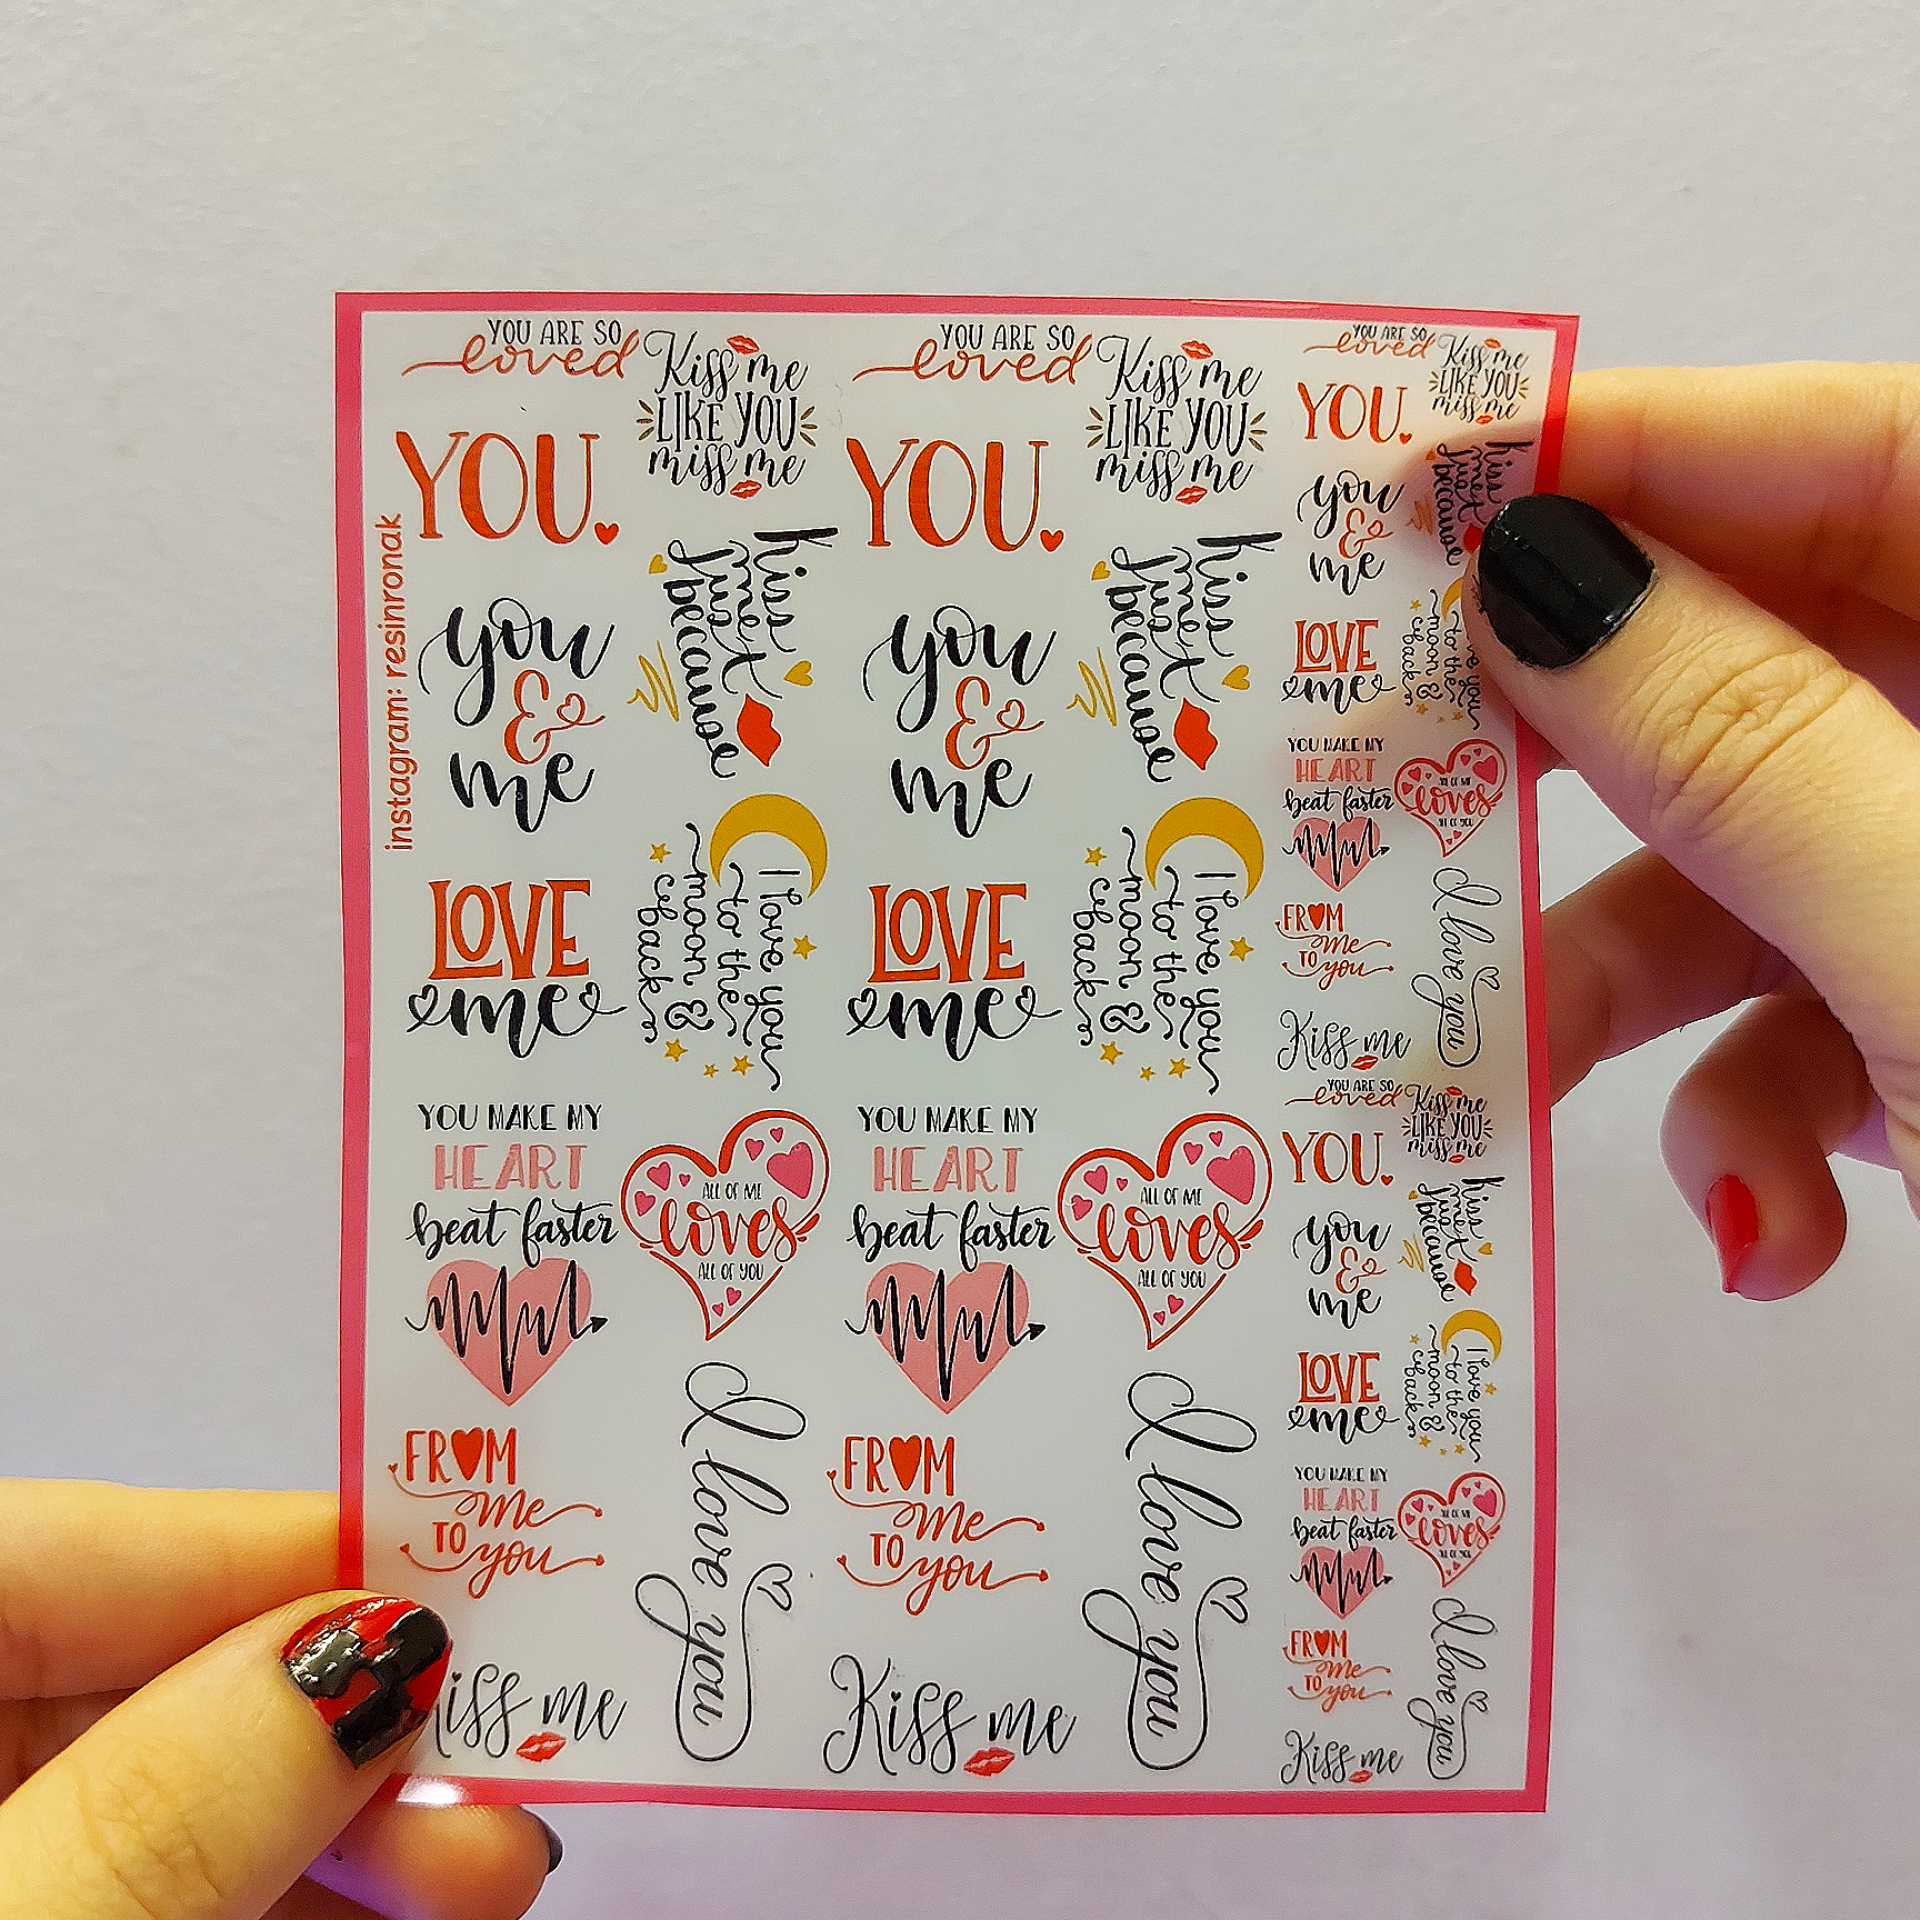 instagram: resinronak
YOU ARE SO
loved
YOU.
you
&
me
LOVE
me
YOU MAKE MY
HEART
beat faster
FROM
me
TO
you
Kiss me
Kiss me
LIKE YOU
miss me
Kiss
me
just
because
I love you
to the
moon &
back
ALL OF ME
loves
ALL OF YOU
I love you
YOU ARE SO
loved
YOU.
you
&
me
LOVE
me
YOU MAKE MY
HEART
beat faster
FROM
me
TO
you
Kiss me
Kiss me
LIKE YOU
miss me
Kiss
me
just
because
I love you
to the
moon &
back
ALL OF ME
loves
ALL OF YOU
I love you
YOU ARE SO
loved
YOU.
you
&
me
LOVE
me
YOU MAKE MY
HEART
beat faster
FROM
me
TO
you
Kiss me
Kiss me
LIKE YOU
miss me
Kiss
me
just
because
you
to the
moon &
back
ALL OF ME
loves
ALL OF YOU
I love you
YOU ARE SO
loved
YOU.
you
&
me
LOVE
me
YOU MAKE MY
HEART
beat faster
FROM
me
TO
you
Kiss me
Kiss me
LIKE YOU
miss me
Kiss
me
just
because
I love you
to the
moon &
back
ALL OF ME
loves
ALL OF YOU
I love you